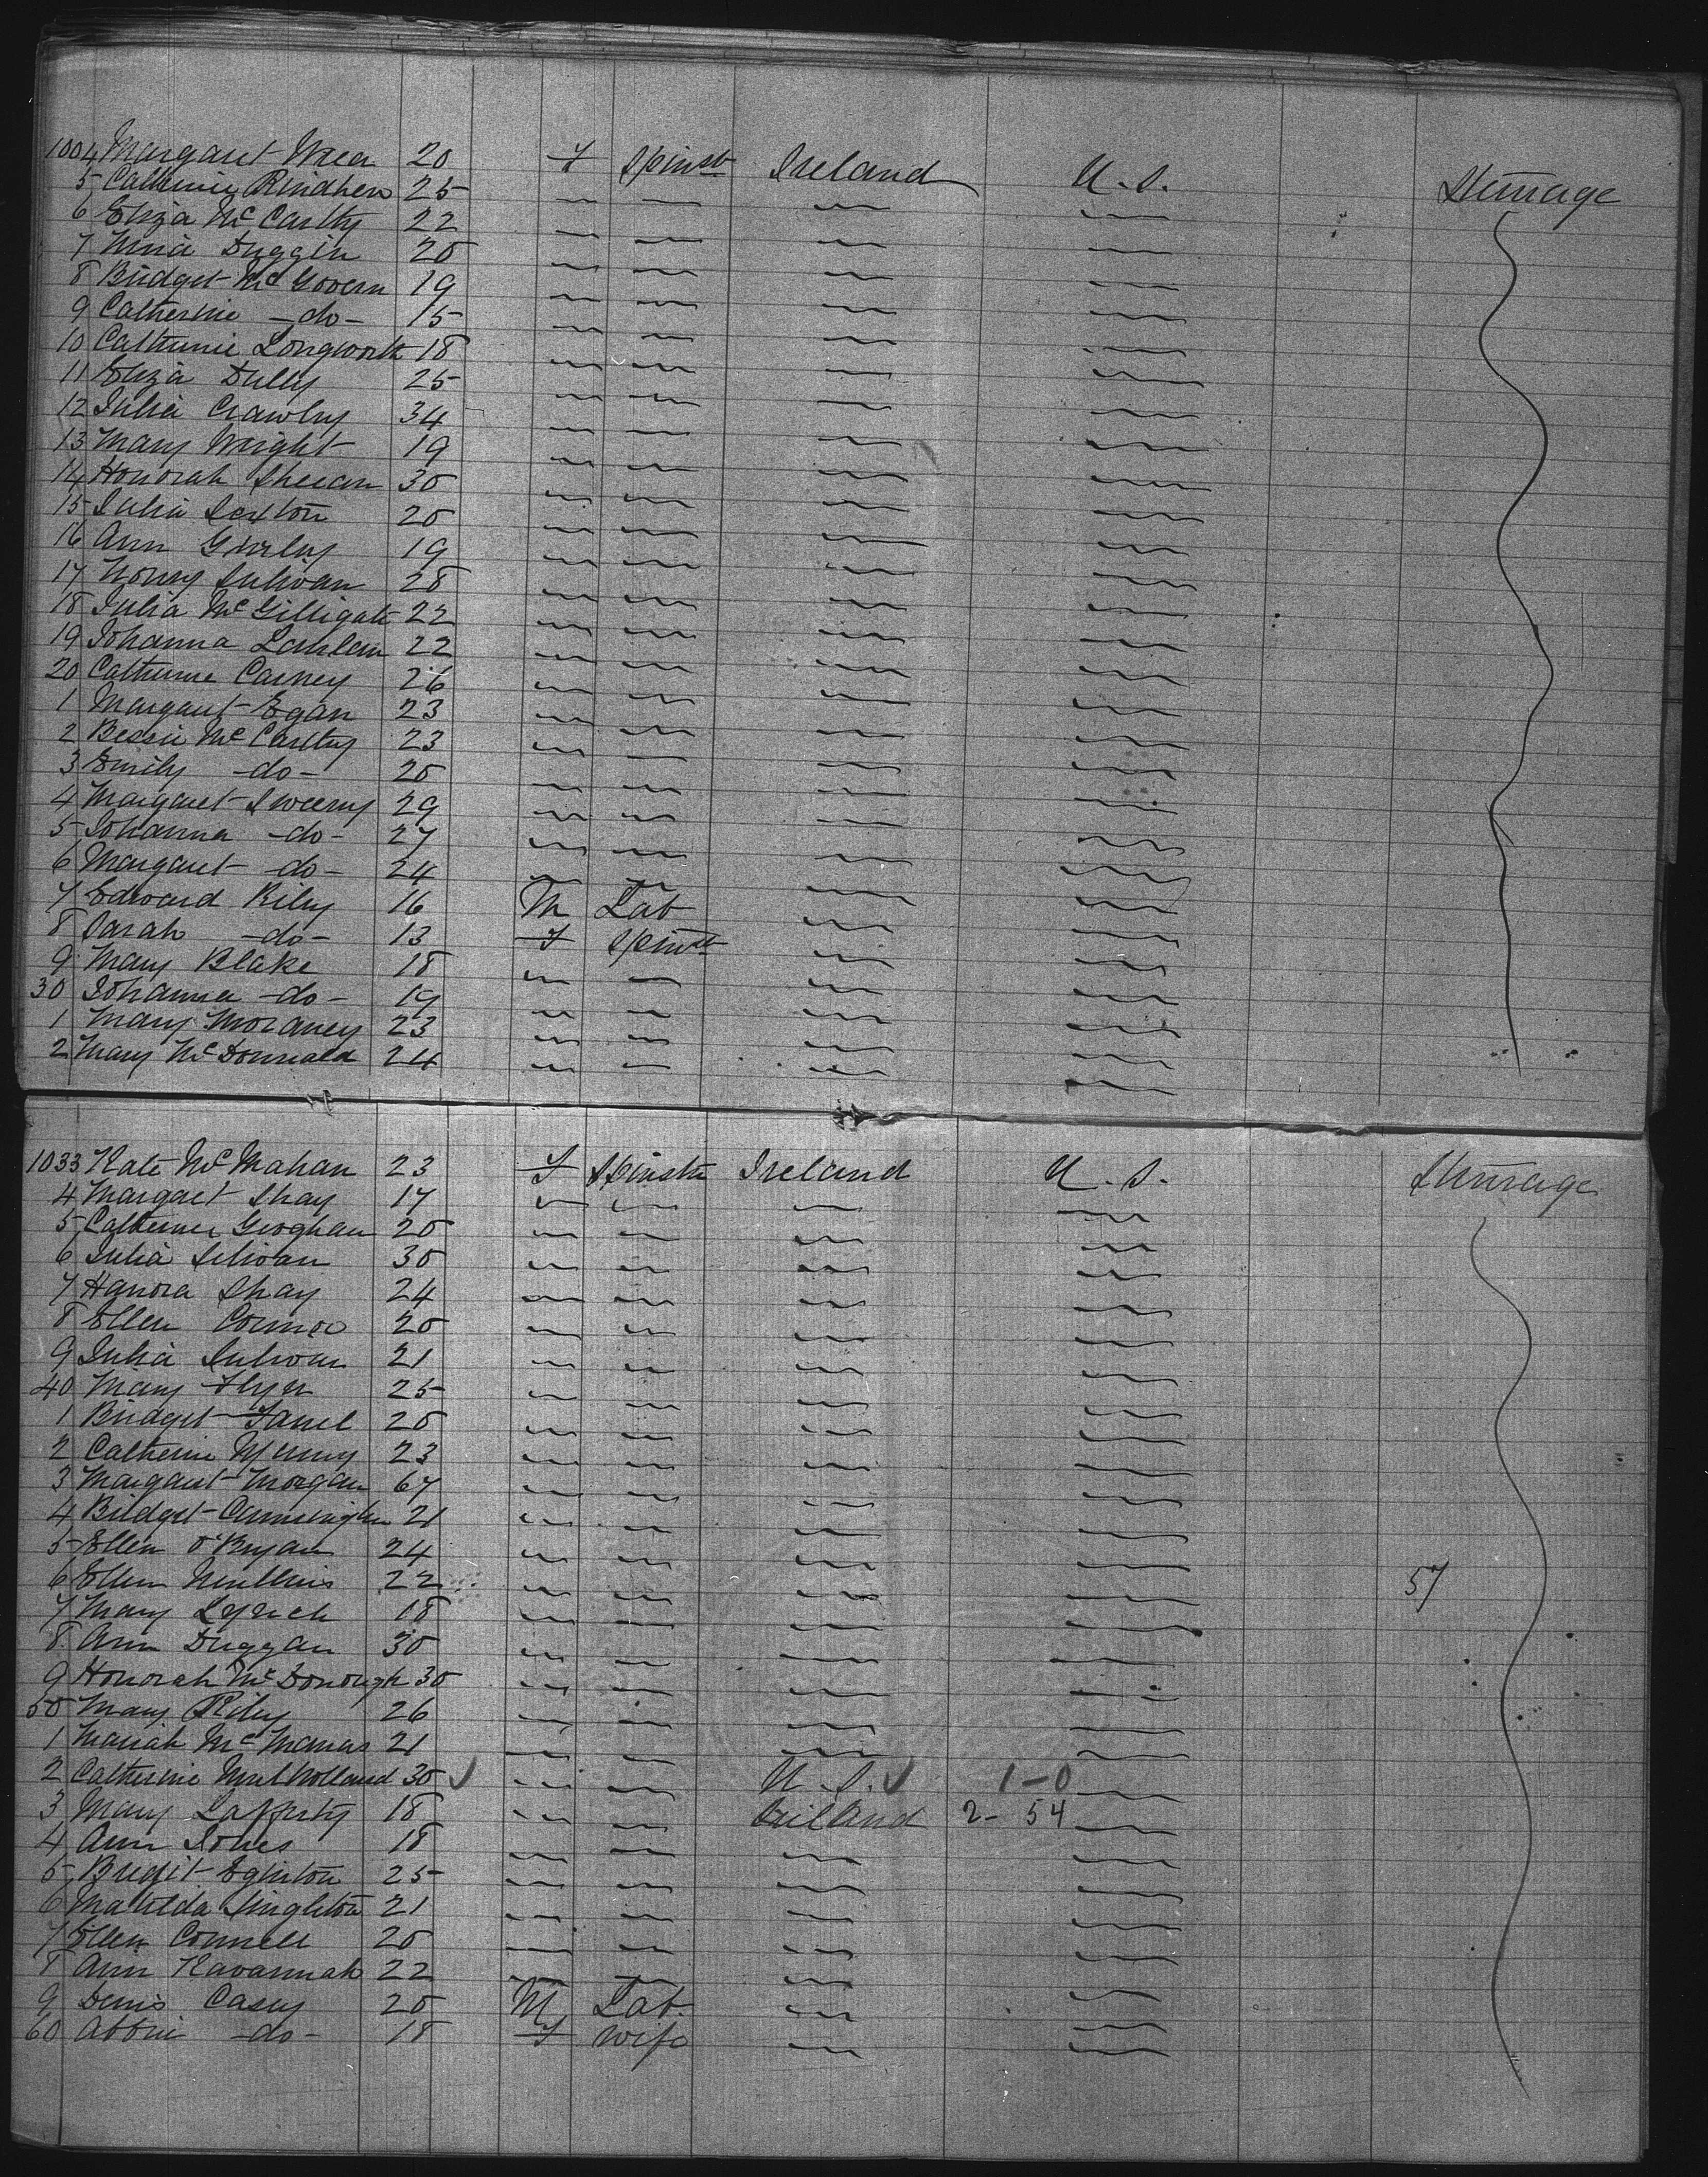 1004 Margaret 20 F Spinst Ireland U.S. Steerage
5 Catherine Rindhen 25 — — — —
6 Eliza McCarthy 22 — — — —
7 Duggin 20 — — — —
8 Bridget McGovern 19 — — — —
9 Catherine -do- 15 — — — —
10 Catherine Longworth 18 — — — —
11 Eliza Dully 25 — — — —
12 Julia Crawley 34 — — — —
13 Mary Wright 19 — — — —
14 Honorah Sheean 30 — — — —
15 Julia Sexton 20 — — — —
16 Ann 19 — — — —
17 Norry Sulivan 28 — — — —
18 Julia McGilligate 22 — — — —
19 Johanna 22 — — — —
20 Catherine Carney 26 — — — —
1 Margaret Egan 23 — — — —
2 Bessie McCarthy 23 — — — —
3 Emily -do- 20 — — — —
4 Margaret Sweeny 29 — — — —
5 Johanna -do- 27 — — — —
6 Margaret -do- 24 — — — —
7 Edward Riley 16 M Lab — —
8 Sarah -do- 13 F Spinst — —
9 Mary Blake 18 — — — —
30 Johanna -do- 19 — — — —
1 Mary Moraney 23 — — — —
2 Mary McDonnald 24 — — — —
1033 Kate McMahan 23 F Spinstr Ireland U.S. Steerage
4 Margaet Shay 17 — — — —
5 Catherine Geoghan 20 — — — —
6 Julia Silivan 30 — — — —
7 Hanora Shay 24 — — — —
8 Ellen Connor 20 — — — —
9 Julia Sulivan 21 — — — —
40 Mary Flyn 25 — — — —
1 Bridget Farrel 20 — — — —
2 Catherine 23 — — — —
3 Margaret Morgan 67 — — — —
4 Bridget Cunningham 21 — — — —
5 Ellen O'Bryan 24 — — — —
6 Ellen Mullins 22 — — — — 57
7 Mary Lynch 18 — — — —
8 Ann Duggan 30 — — — —
9 Honorah McDonough 30 — — — —
50 Mary Riley 26 — — — —
1 Mariah McManas 21 — — — —
2 Catherine Mulholland 30 ✓ — — U.S. ✓ 1-0 —
3 Mary Lafferty 18 — — Ireland 2-54 —
4 Ann Jones 18 — — — —
5 Bregit Eginton 25 — — — —
6 Matilda Singleton 21 — — — —
7 Ellen Connell 20 — — — —
8 Ann Kavannah 22 — — — —
9 Denis Casey 20 M Lab. — —
60 Abbie -do- 18 F Wife — —